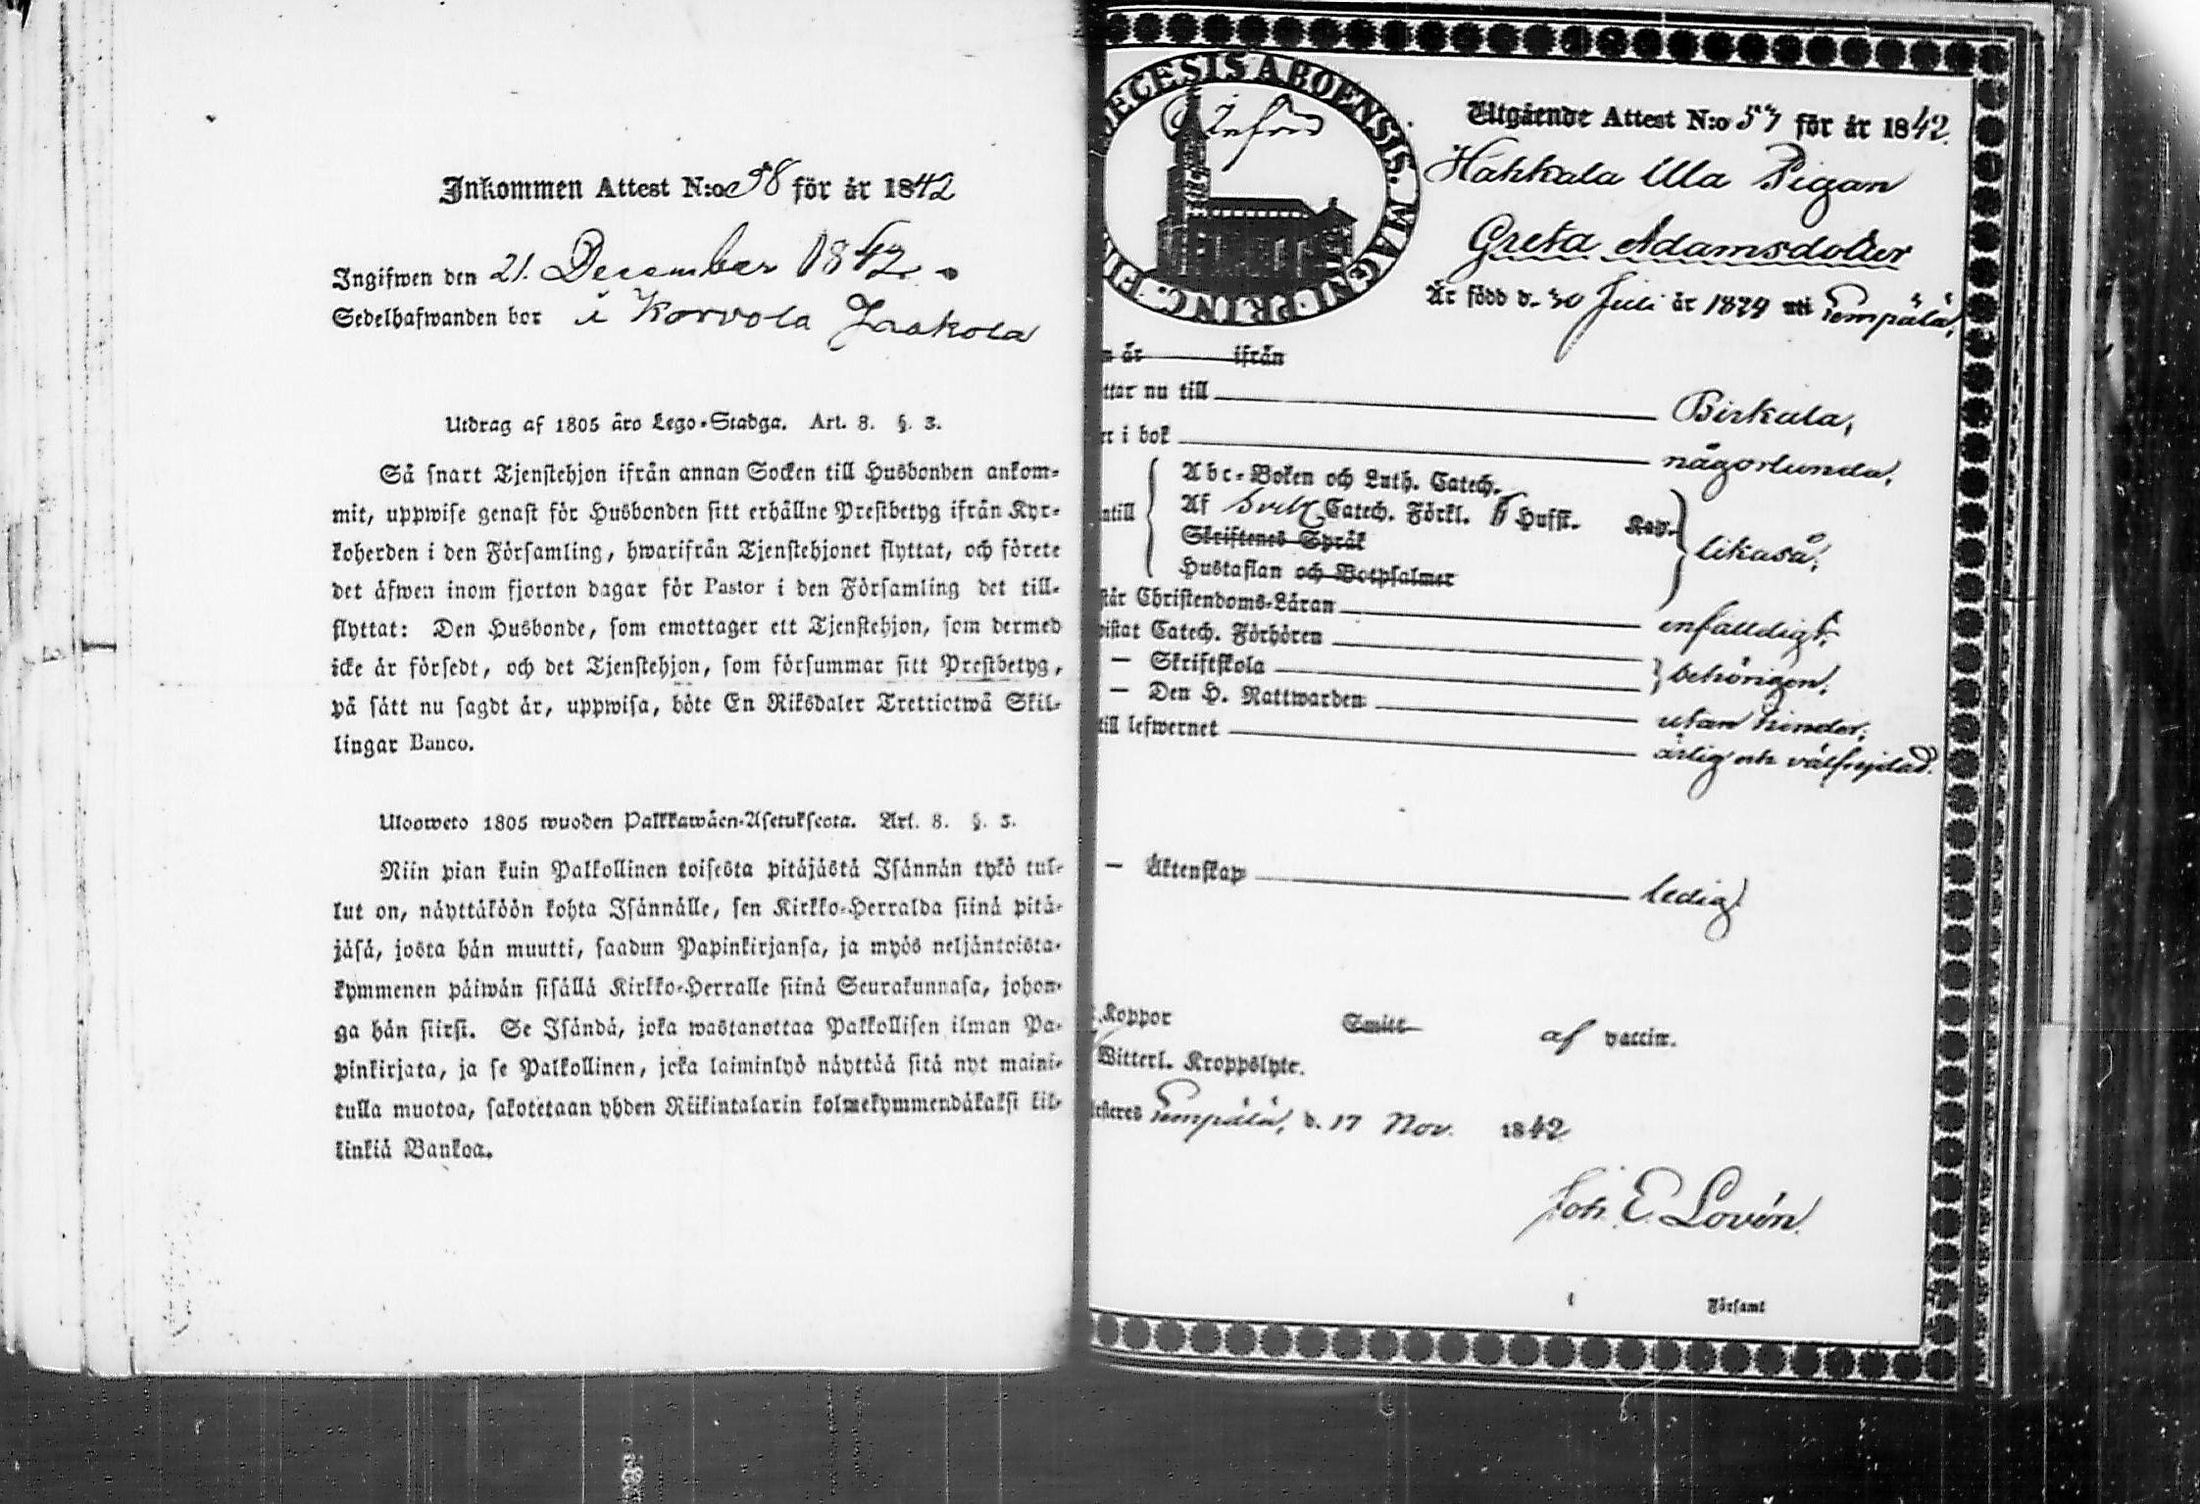 Inkommen Attest N:o 98 för år 1842
Ingifwen den 21. December 1842.
Sedelhafwanden bor i Korvola Jaskola
Utdrag af 1805 års Lego-Stadga. Art. 8. §. 3.
Så snart Tjenstehjon ifrån annan Socken till Husbonden ankom-
mit, uppwise genast för Husbonden sitt erhållne Prestbetyg ifrån Kyr-
koherden i den Församling, hwarifrån Tjenstehjonet flyttat, och förete
det äfwen inom fjorton dagar för Pastor i den Församling det till-
flyttat: Den Husbonde, som emottager ett Tjenstehjon, som dermed
icke är försedt, och det Tjenstehjon, som försummar sitt Prestbetyg,
på sätt nu sagdt är, uppwisa, böte En Riksdaler Trettiotwå Skil-
lingar Banco.
Ulosweto 1805 wuoden Palkkawäen-Asetuksesta. Art. 8. §. 3.
Niin pian kuin Palkollinen toisesta pitäjästä Isännän tykö tul-
lut on, näyttäköön kohta Isännälle, sen Kirkko-Herralda siinä pitä-
jäsä, josta hän muutti, saadun Papinkirjansa, ja myös neljäntoista-
kymmenen päiwän sisällä Kirkko-Herralle siinä Seurakunnasa, johon-
ga hän siirsi. Se Isändä, joka wastanottaa Palkollisen ilman Pa-
pinkirjata, ja se Palkollinen, joka laiminlyö näyttää sitä nyt maini-
tulla muotoa, sakotetaan yhden Riikintalarin kolmekymmendäkaksi kil-
linkiä Bankoa.
ECESIS ABOENSIS. MAGNI PRINC. FI
Införd
Utgående Attest N:o 57 för år 1842.
Hakkala Ulla Pigan
Greta Adamsdotter
Är född d. 30 Juli år 1824 uti Lempälä,
n år ifrån
ttar nu till Birkala,
r i bok någorlunda,
ntill
Abc-Boken och Luth. Catech.
Af Svib. Catech. Förkl. 6 Hufst. Kap. likaså,
Skriftenes Språk
Hustaflan och Botpsalmer
står Christendoms-Läran enfaldigt.
wistat Catech. Förhören
— Skriftskola behörigen,
— Den H. Nattwarden utan hinder,
till lefwernet ärlig och välfrejdad.
— Äktenskap ledig
Koppor Smitt af vaccin.
Witterl. Kroppslyte.
testeres Lempälä, d. 17 Nov. 1842
Joh. E. Lovén.
Församl